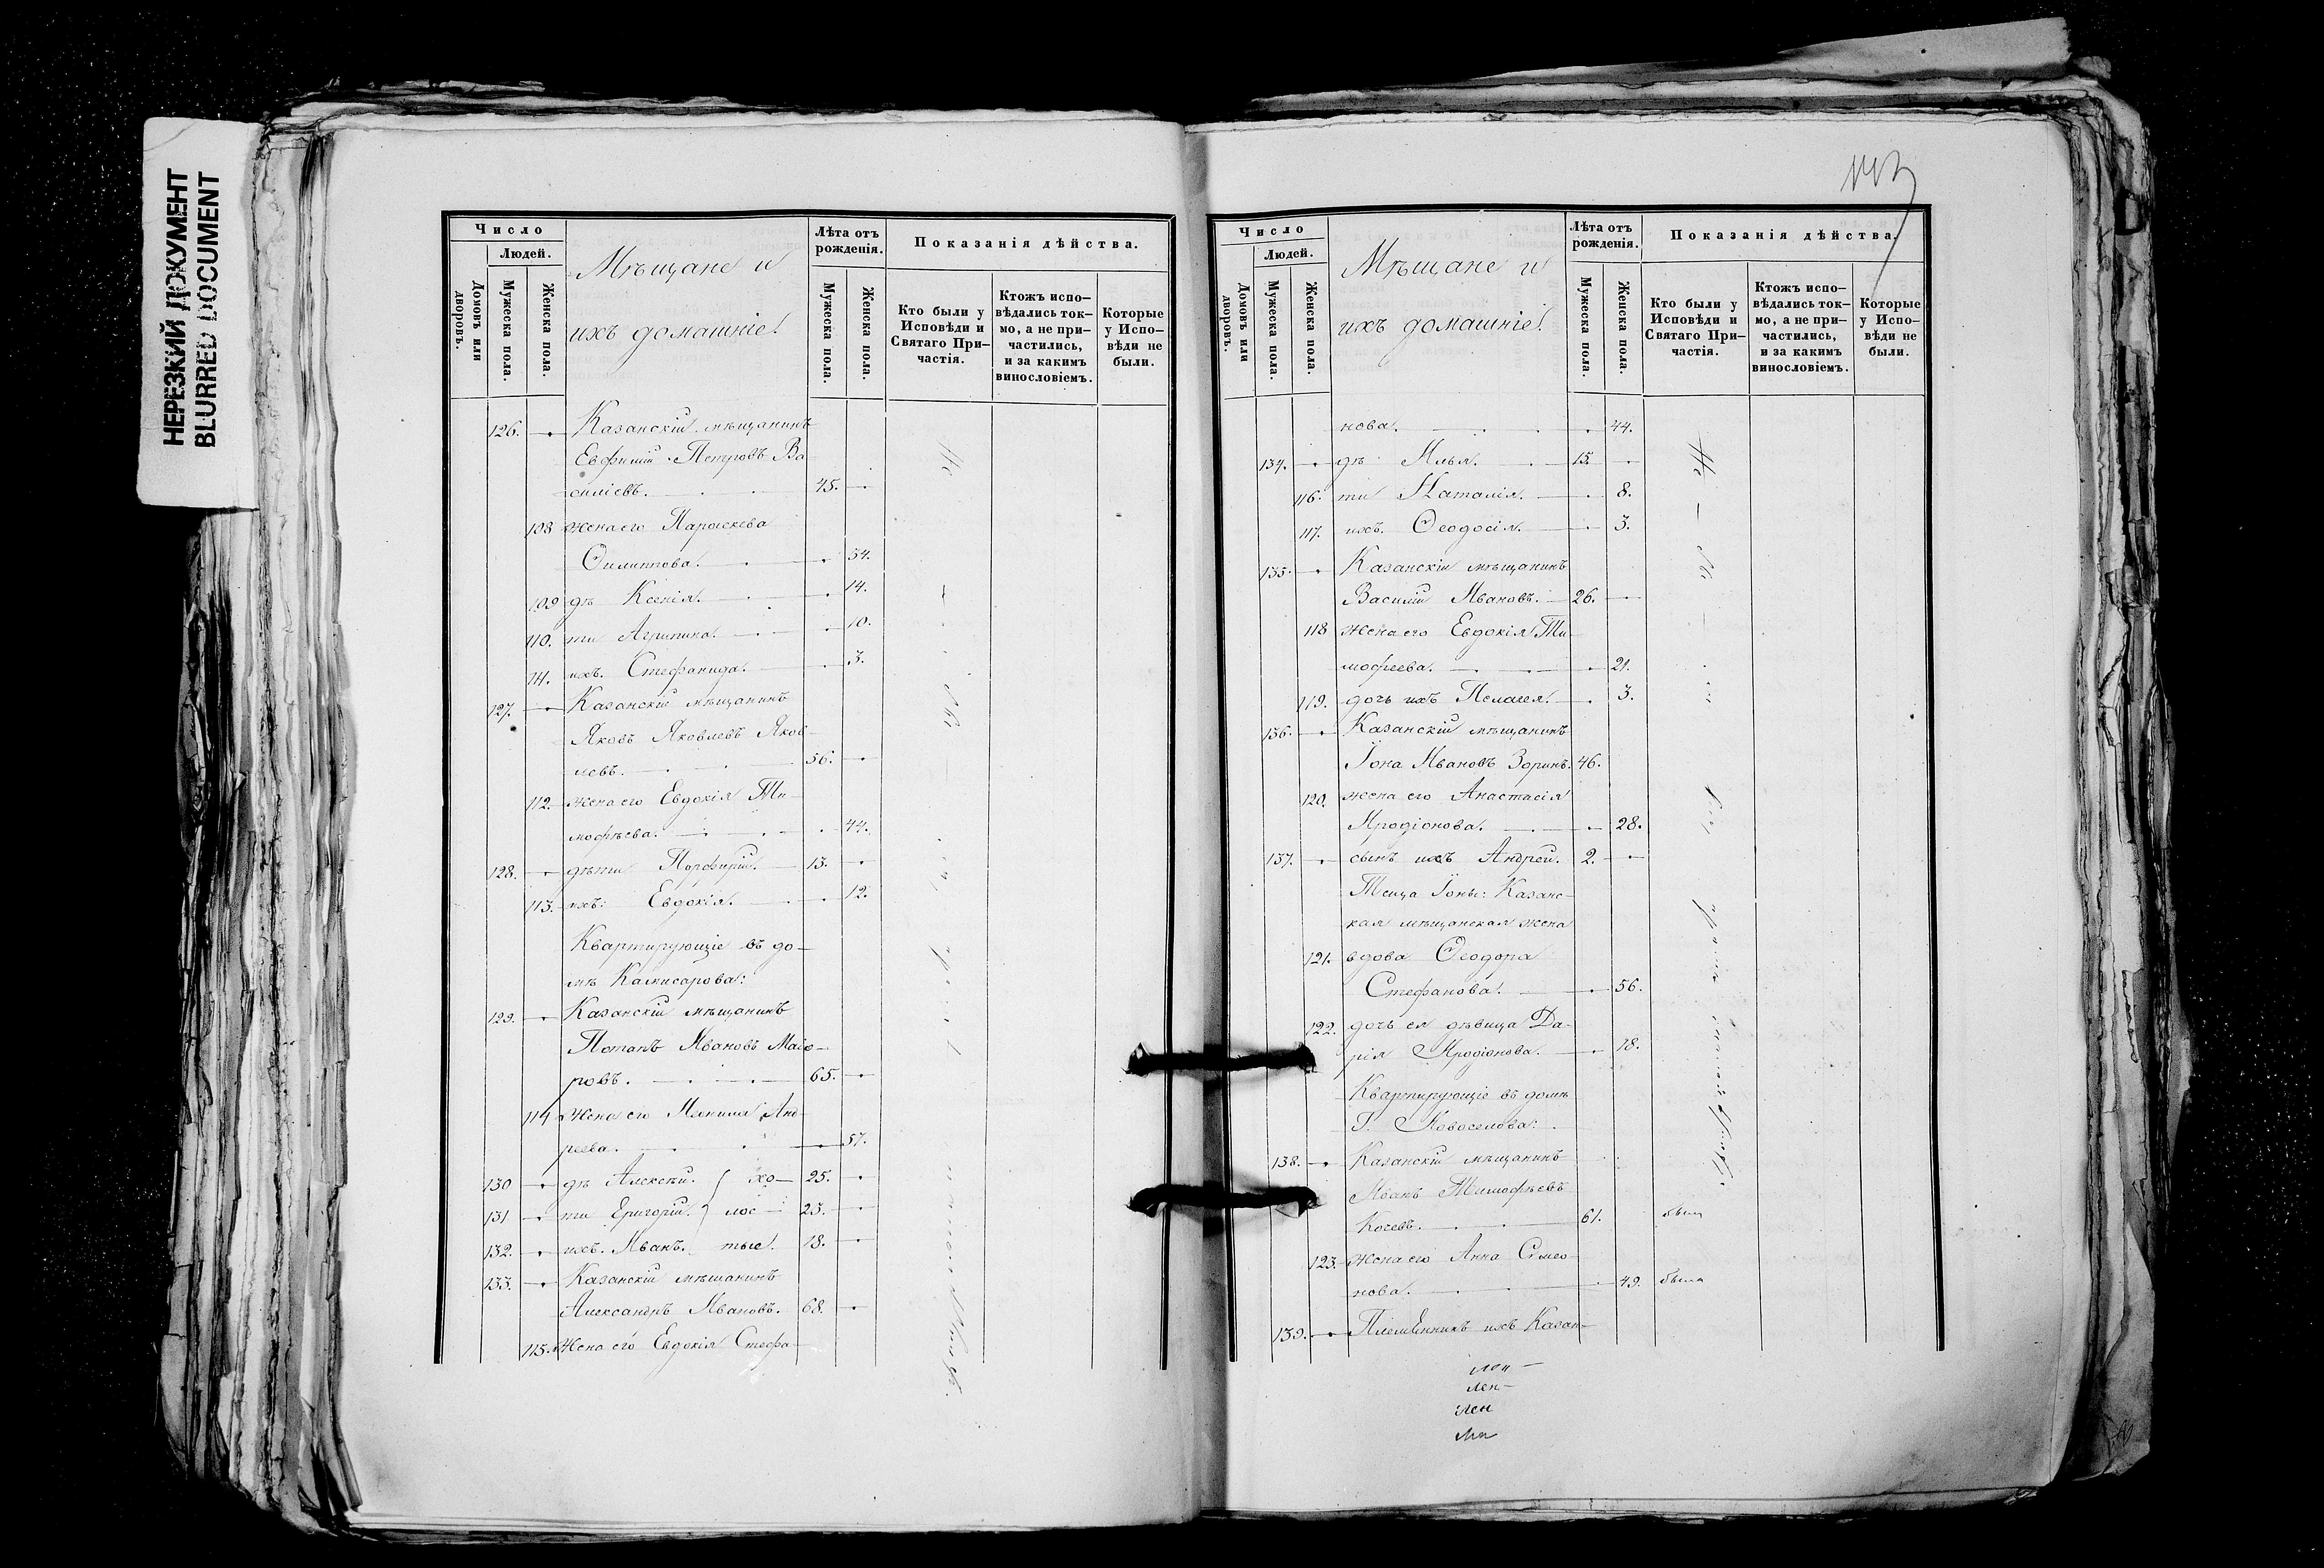 НЕРЕЗКИЙ ДОКУМЕНТ
BLURRED DOCUMENT
Число
Людей.
Домовъ или дворовъ.
Мужеска пола.
Женска пола.
Мѣщане и
ихъ домашніе.
Лѣта отъ рожденія.
Мужеска пола.
Женска пола.
Показанія дѣйства.
Кто были у Исповѣди и Святаго При-частія.
Ктожъ испо-вѣдались ток-мо, а не при-частились, и за какимъ винословіемъ.
Которые у Испо-вѣди не были.
126. Казанскій мѣщанинъ
Евфимій Петровъ Ва-
силіевъ. 45.
108 жена его Параскева
Филиппова. 54.
109 дѣ Ксенія. 14.
110. ти Агрипина. 10.
111. ихъ. Стефанида. 3.
127. Казанскій мѣщанинъ
Яковъ Яковлевъ Яков-
левъ. 56.
112. жена его Евдокія Ти-
мофѣева. 44.
128. дѣти Порфирій. 13.
113. ихъ: Евдокія. 12.
Квартирующіе въ до-
мѣ Камисарова:
129. Казанскій мѣщанинъ
Потапъ Ивановъ Маіо-
ровъ. 65.
114 Жена его Меонила Анд-
реева. 57.
130 дѣ Алексѣй. хо- 25.
131 ти Григорій. лос- 23.
132. ихъ. Иванъ. тые. 18.
133. Казанскій мѣщанинъ
Александръ Ивановъ. 68.
115. Жена его Евдокія Стефа-
Число
Людей.
Домовъ или дворовъ.
Мужеска пола.
Женска пола.
Мѣщане и
ихъ домашніе.
Лѣта отъ рожденія.
Мужеска пола.
Женска пола.
Показанія дѣйства.
Кто были у Исповѣди и Святаго При-частія.
Ктожъ испо-вѣдались ток-мо, а не при-частились, и за какимъ винословіемъ.
Которые у Испо-вѣди не были.
нова. 44.
134. дѣ Илья. 15.
116. ти Наталія. 8.
117. ихъ. Ѳеодосія. 3.
135. Казанскій мѣщанинъ
Василій Ивановъ. 26.
118 жена его Евдокія Ти-
мофеева. 21.
119. дочь ихъ Пелагея. 3.
136. Казанскій мѣщанинъ
Іона Ивановъ Зоринъ. 46.
120. жена его Анастасія
Иродіонова. 28.
137. сынъ ихъ Андрей. 2.
Теща Іоны: Казанс-
кая мѣщанская жена
121. вдова Ѳеодора
Стефанова. 56.
122. дочь ея дѣвица Да-
рія Иродіонова. 18.
Квартирующіе въ домѣ
Г. Новоселова:
138. Казанскій мѣщанинъ
Иванъ Тимофѣевъ
Кочевъ. 61. былъ
123. Жена его Анна Симео-
нова. 49. была
139. Племенникъ ихъ Казан-